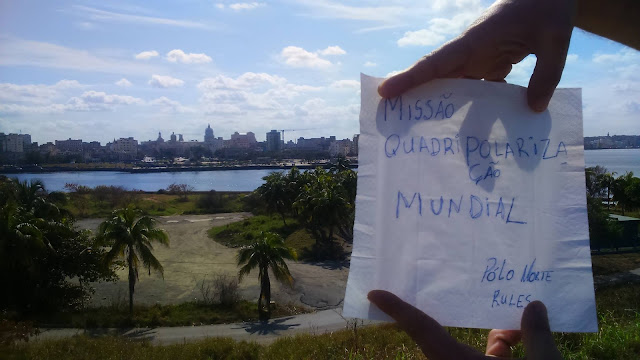 MISSÃO
QUADRIPOLARIZA
ÇÃO
MUNDIAL
PÓLO NORTE
RULES